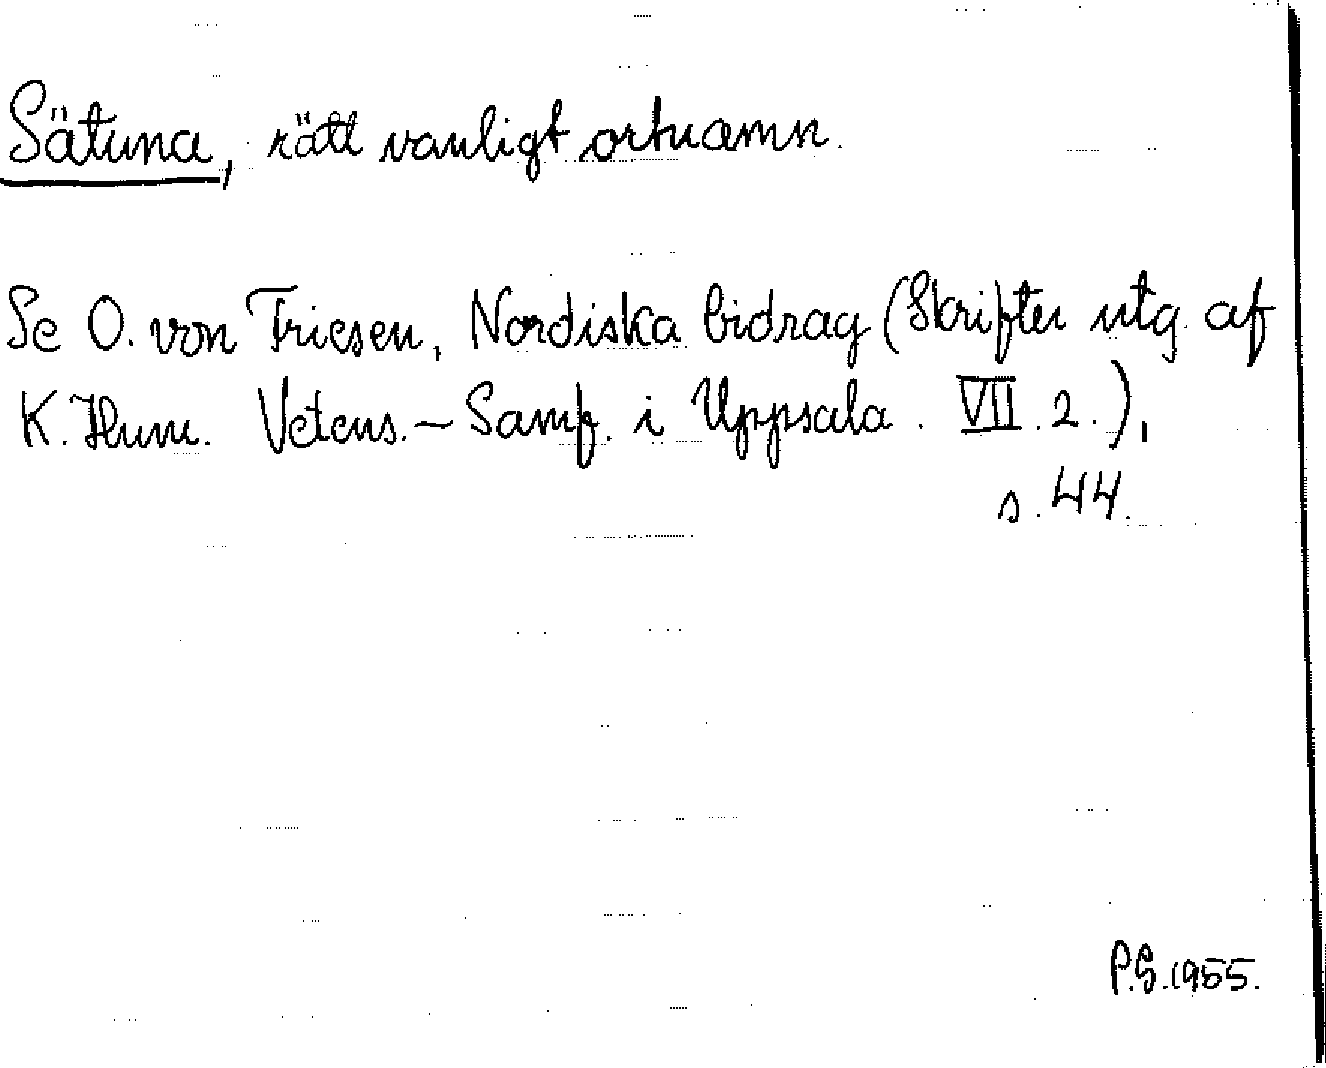 Sätuna, rätt vanligt ortnamn.
Se O. von Friesen, Nordiska bidrag (Skrifter utg. af
K. Hum. Vetens.- Samf. i Uppsala. VII. 2.),
s. 44.
P.S. 1955.